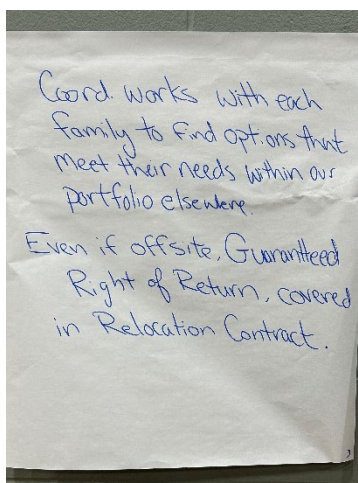 Coord. works with each
family to find options that
meet their needs within our
portfolio elsewhere.
Even if offsite, Guarantteed
Right of Return, covered
in Relocation Contract.